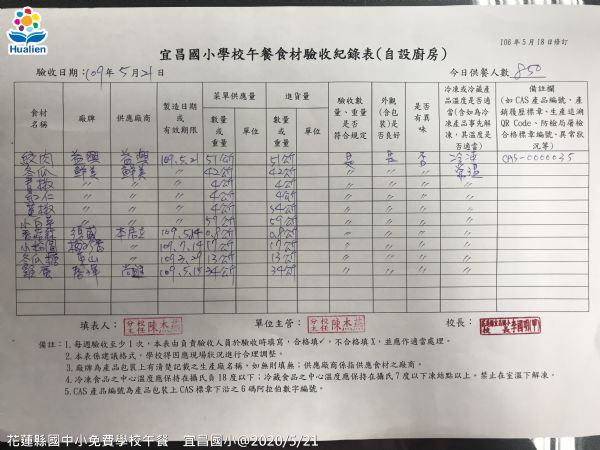 Hualien
106年5月18日修訂
宜昌國小學校午餐食材驗收紀錄表(自設廚房)
驗收日期：109年5月21日
今日供餐人數 850
食材名稱 廠牌 供應廠商 製造日期或有效期限 菜單供應量 進貨量 驗收數量、重量是否符合規定 外觀(含包裝)是否良好 是否有異味 冷凍或冷藏產品溫度是否適當(含如為冷凍產品事先解凍，其溫度是否適當) 備註欄(如CAS產品編號、產銷履歷標章、生產追溯QR Code、防檢局屠檢合格標章編號、異常狀況等)
數量或重量 單位 數量或重量 單位
絞肉 109.5.21 51公斤 51公斤 是 是 否 冷凍 CAS-000035
冬瓜 鮮美 鮮美 〃 42公斤 42公斤 〃 〃 〃 常溫
青椒 〃 〃 〃 4公斤 4公斤 〃 〃 〃 〃
〃 〃 〃 4公斤 4公斤 〃 〃 〃 〃
〃 〃 〃 4公斤 4公斤 〃 〃 〃 〃
小白菜 〃 〃 〃 59公斤 59公斤 〃 〃 〃
109.5.14 〃 〃 〃
109.7.14 17公斤 17公斤 〃 〃 〃
冬瓜糖 東山 〃 13公斤 13公斤 〃 〃 〃
雞蛋 34公斤 34公斤 〃 〃 〃 〃
填表人： 單位主管： 校長：
備註：1.每週驗收至少1次，本表由負責驗收人員於驗收時填寫，合格填✓，不合格填X，並應作適當處理。
2.本表係建議格式，學校得因應現場狀況進行合理調整。
3.廠牌為產品包裝上有清楚記載之生產廠名稱，如無則填無；供應廠商係指供應食材之廠商。
4.冷凍食品之中心溫度應保持在攝氏負18度以下；冷藏食品之中心溫度應保持在攝氏7度以下凍結點以上。禁止在室溫下解凍。
5.CAS產品編號為產品包裝上CAS標章下沿之6碼阿拉伯數字編號。
花蓮縣國中小免費學校午餐 宜昌國小@2020/5/21